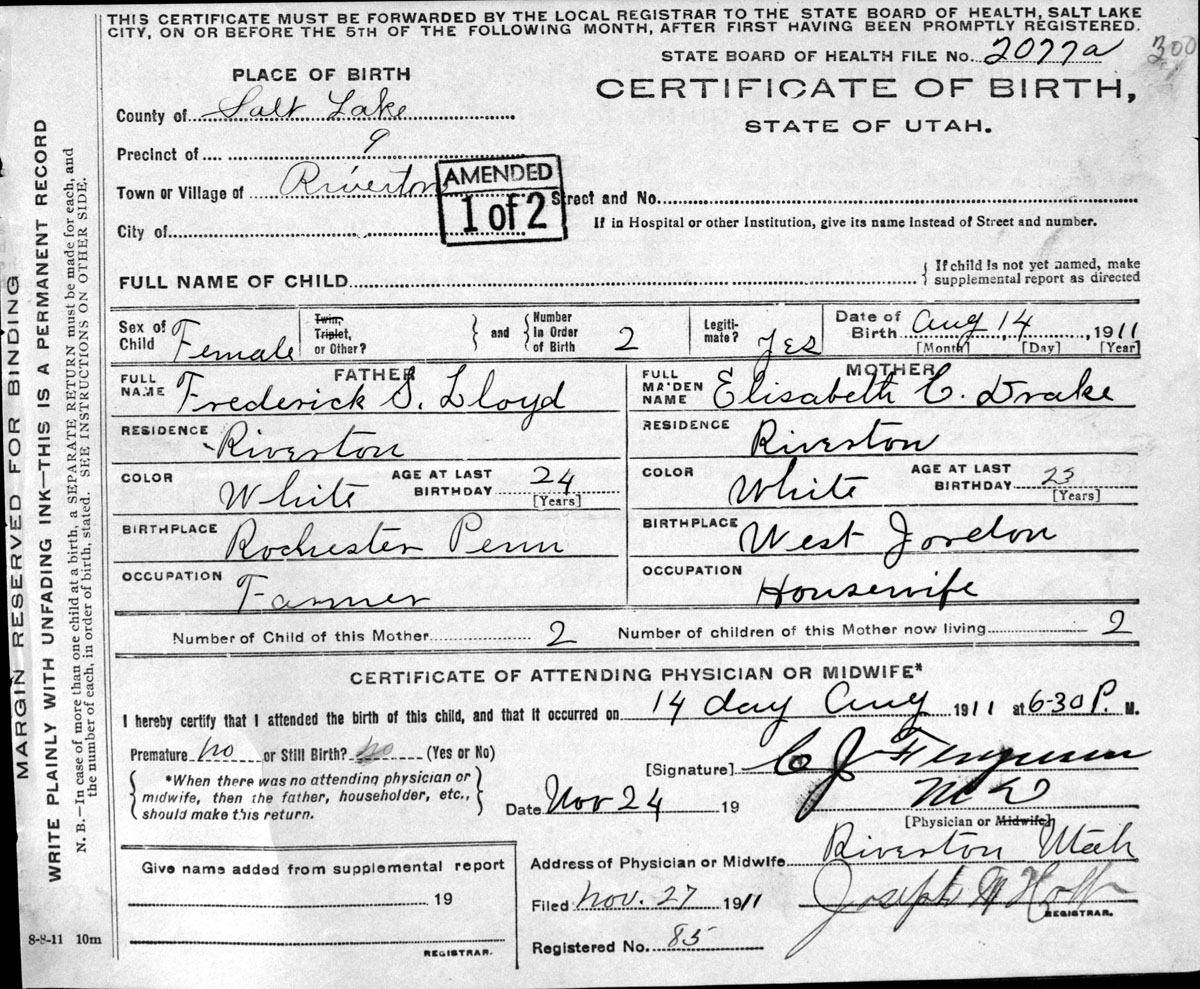 THIS CERTIFICATE MUST BE FORWARDED BY THE LOCAL REGISTRAR TO THE STATE BOARD OF HEALTH, SALT LAKE
CITY, ON OR BEFORE THE 5TH OF THE FOLLOWING MONTH, AFTER FIRST HAVING BEEN PROMPTLY REGISTERED.
STATE BOARD OF HEALTH FILE No. 2077a
300
PLACE OF BIRTH
CERTIFICATE OF BIRTH,
STATE OF UTAH.
County of Salt Lake
Precinct of 9
Town or Village of Riverton
AMENDED
1 of 2
Street and No.
City of
If in Hospital or other Institution, give its name Instead of Street and number.
FULL NAME OF CHILD
If child is not yet named, make
supplemental report as directed
Sex of Child Female
Twin, Triplet, or Other?
and
Number In Order of Birth 2
Legiti-mate? yes
Date of Birth Aug 14, 1911
[Month] [Day] [Year]
FATHER
FULL NAME Frederick S. Lloyd
RESIDENCE Riverton
COLOR White
AGE AT LAST BIRTHDAY 24
[Years]
BIRTHPLACE Rochester Penn
OCCUPATION Farmer
MOTHER
FULL MAIDEN NAME Elisabeth C. Drake
RESIDENCE Riverton
COLOR White
AGE AT LAST BIRTHDAY 23
[Years]
BIRTHPLACE West Jordon
OCCUPATION Housewife
Number of Child of this Mother 2 Number of children of this Mother now living 2
CERTIFICATE OF ATTENDING PHYSICIAN OR MIDWIFE*
I hereby certify that I attended the birth of this child, and that it occurred on 14 day Aug 1911 at 6-30 P. M.
Premature no or Still Birth? no (Yes or No)
*When there was no attending physician or
midwife, then the father, householder, etc.,
should make this return.
[Signature] C J Ferguson
M D
[Physician or Midwife]
Date Nov 24 19
Address of Physician or Midwife Riverton Utah
Give name added from supplemental report
19
REGISTRAR.
Filed Nov. 27 1911
Joseph M
REGISTRAR.
Registered No. 85
8-8-11 10m
MARGIN RESERVED FOR BINDING
WRITE PLAINLY WITH UNFADING INK—THIS IS A PERMANENT RECORD
N. B.—In case of more than one child at a birth, a SEPARATE RETURN must be made for each, and
the number of each, in order of birth, stated. SEE INSTRUCTIONS ON OTHER SIDE.